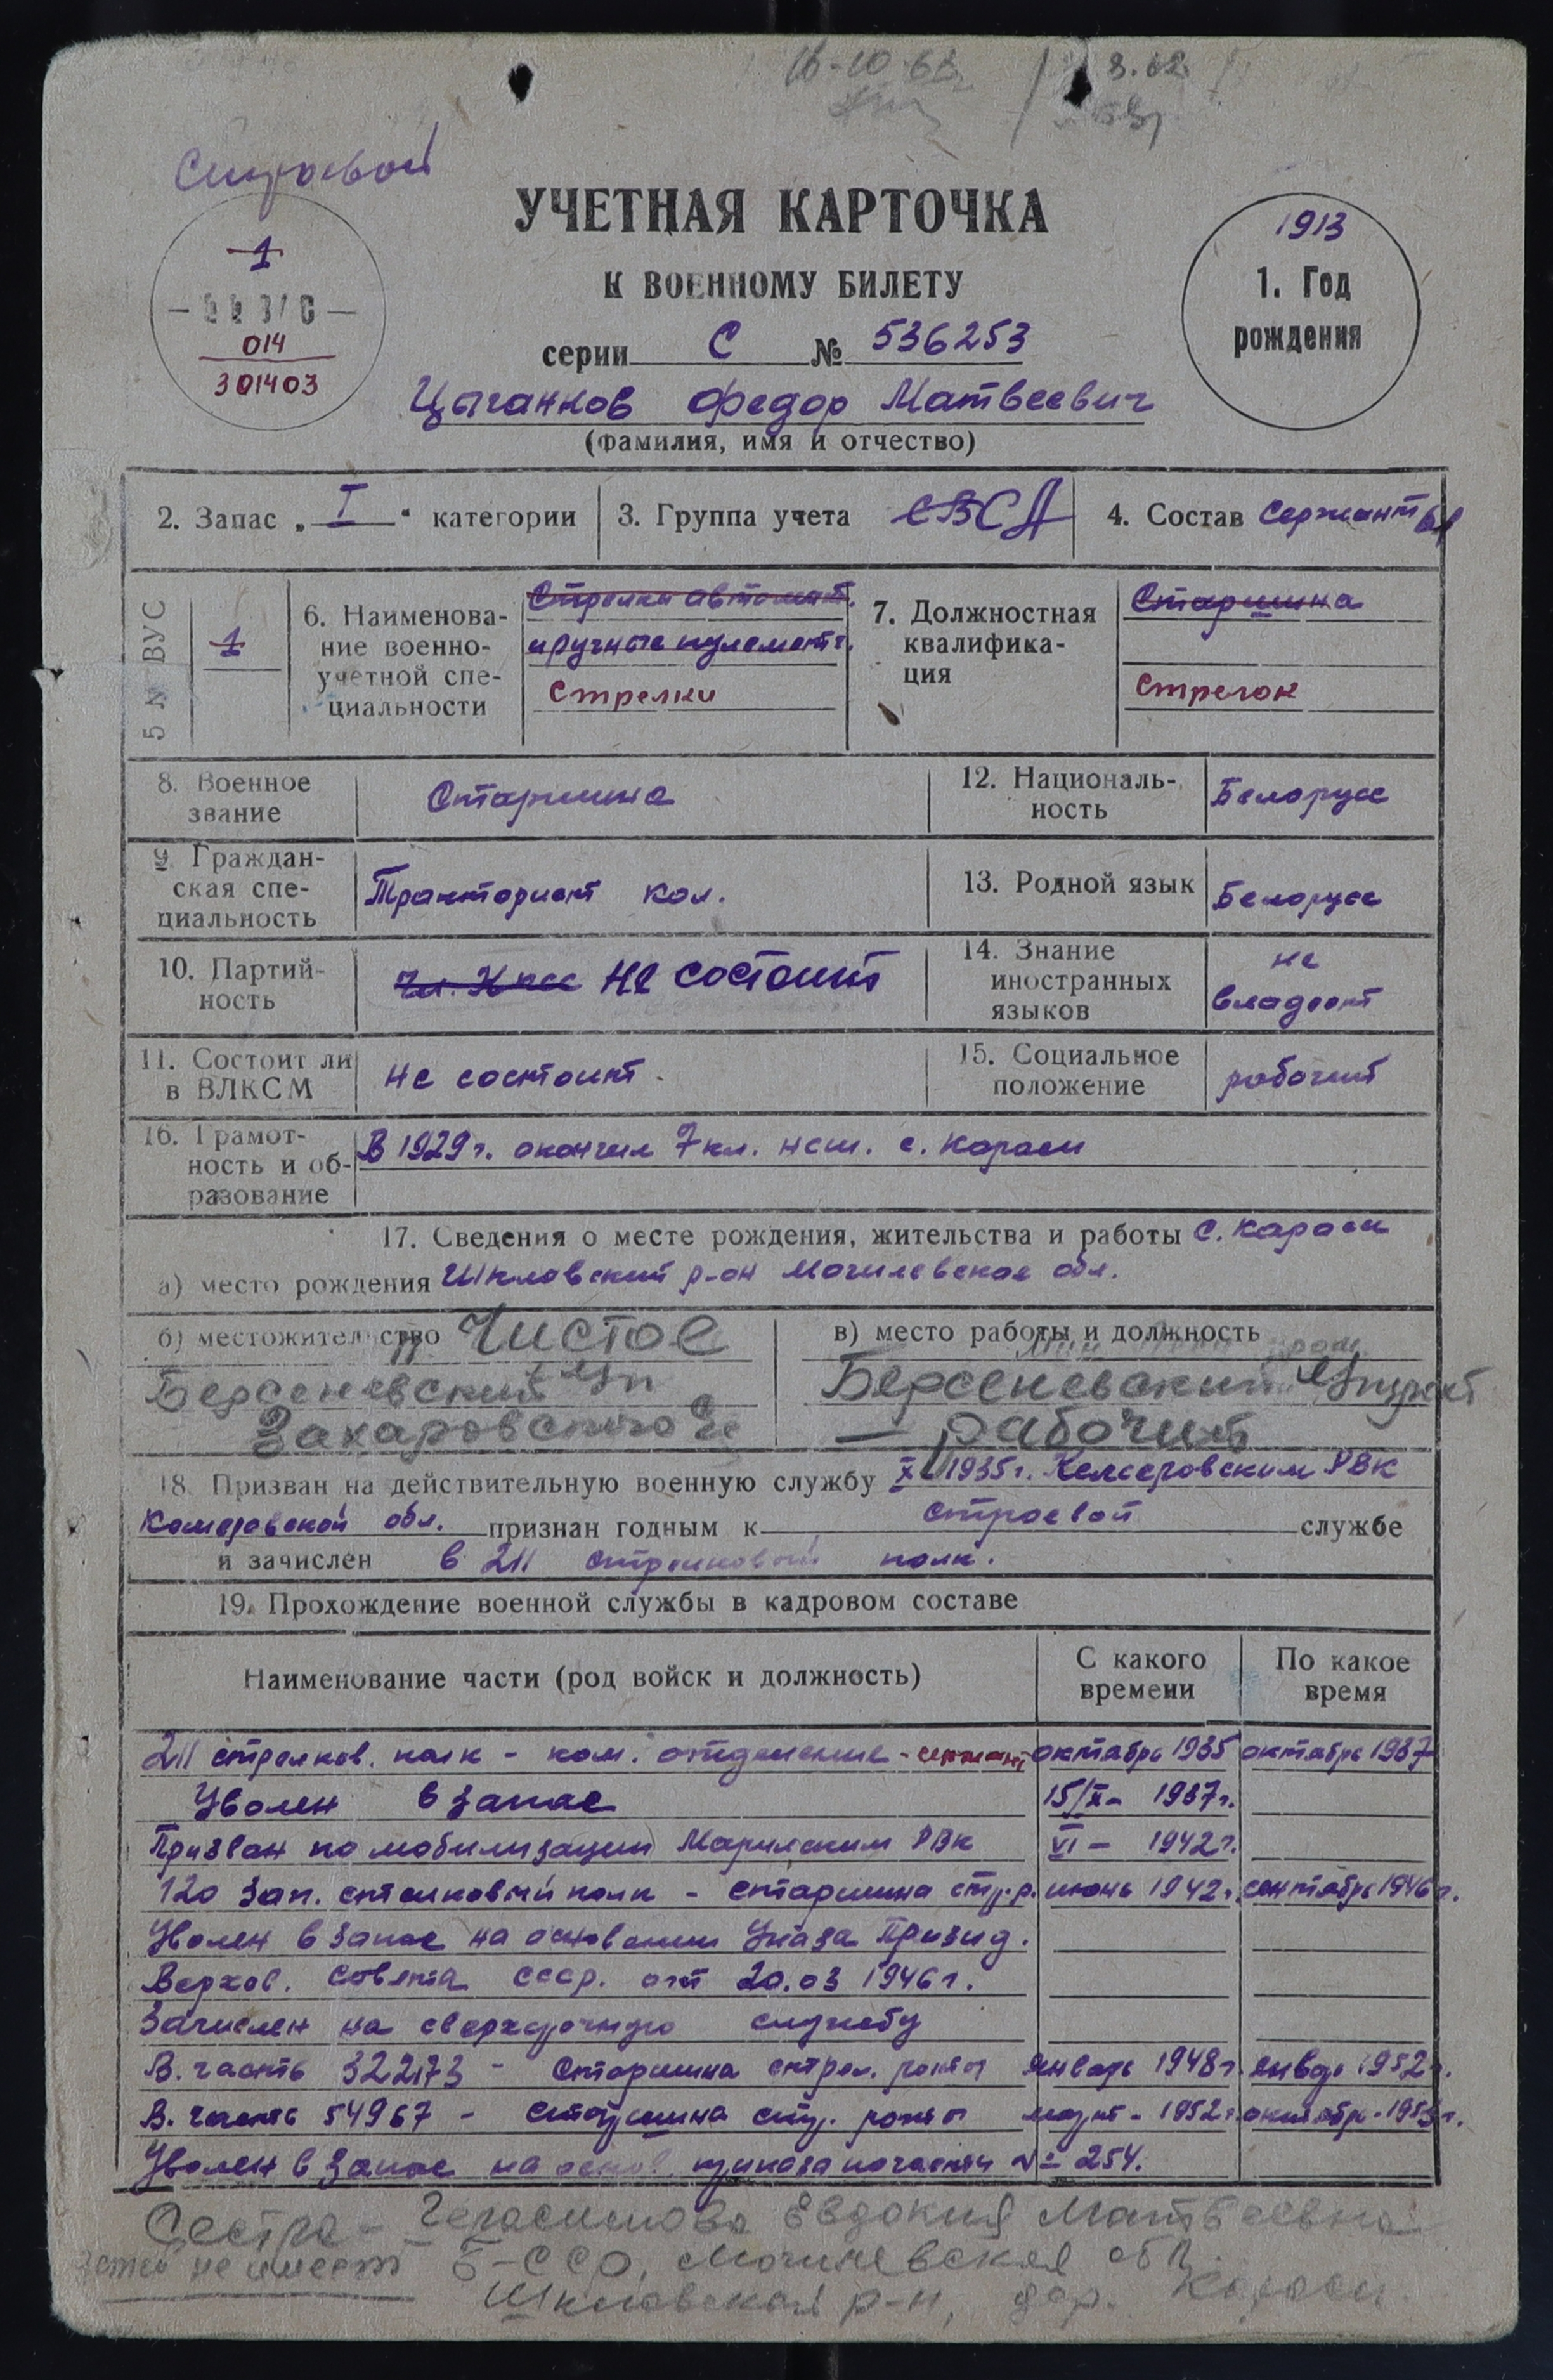 16-10-63г
8.62
Строевой
УЧЕТНАЯ КАРТОЧКА
К ВОЕННОМУ БИЛЕТУ
серии С № 536253
Цыганков Федор Матвеевич
(фамилия, имя и отчество)
1
014
301403
1913
1. Год
рождения
2. Запас „ I “ категории
3. Группа учета СВСА
4. Состав Сержанты
5 № ВУС
1
6. Наименова-
ние военно-
учетной спе-
циальности
Стрелки автомат.
и ручные пулемет.
Стрелки
7. Должностная
квалифика-
ция
Старшина
Стрелок
8. Военное
звание
Старшина
12. Националь-
ность
Белорусс
9. Граждан-
ская спе-
циальность
Тракторист кол.
13. Родной язык
Белорусс
10. Партий-
ность
чл. Кпсс не состоит
14. Знание
иностранных
языков
не
владеет
11. Состоит ли
в ВЛКСМ
не состоит.
15. Социальное
положение
рабочий
16. Грамот-
ность и об-
разование
В 1929г. окончил 7 кл. нсш. с. Караси
17. Сведения о месте рождения, жительства и работы с. Караси
а) место рождения Шкловский р-он Могилевская обл.
б) местожительство п. Чистое
Берсеневский
Захаровского с/с
в) место работы и должность
Берсеневский
— рабочий
18. Призван на действительную военную службу X 1935г. Кемеровским РВК
Кемеровской обл. признан годным к строевой службе
и зачислен в 211 стрелковый полк.
19. Прохождение военной службы в кадровом составе
Наименование части (род войск и должность)
С какого
времени
По какое
время
211 стрелков. полк - ком. отделение - сержант октябрь 1935 октябрь 1937
Уволен в запас 15/X- 1937г.
Призван по мобилизации Мариинским РВК VI - 1942г.
120 Зап. стрелковый полк - старшина стр.р. июнь 1942г. сентябрь 1946г.
Уволен в запас на основании Указа Призид.
Верхов. Совета СССР. от 20.03 1946г.
Зачислен на сверхсрочную службу
В. часть 32273 - Старшина стрел. роты январь 1948г. январь 1952г.
В. часть 54967 - старшина стр. роты март - 1952г. октябрь - 1953г.
Уволен в запас на основ. приказа по части № 254.
Сестра - Герасимова Евдокия Матвеевна
детей не имеет Б-ССР, Могилевская обл.
Шкловская р-н, дер. Караси.